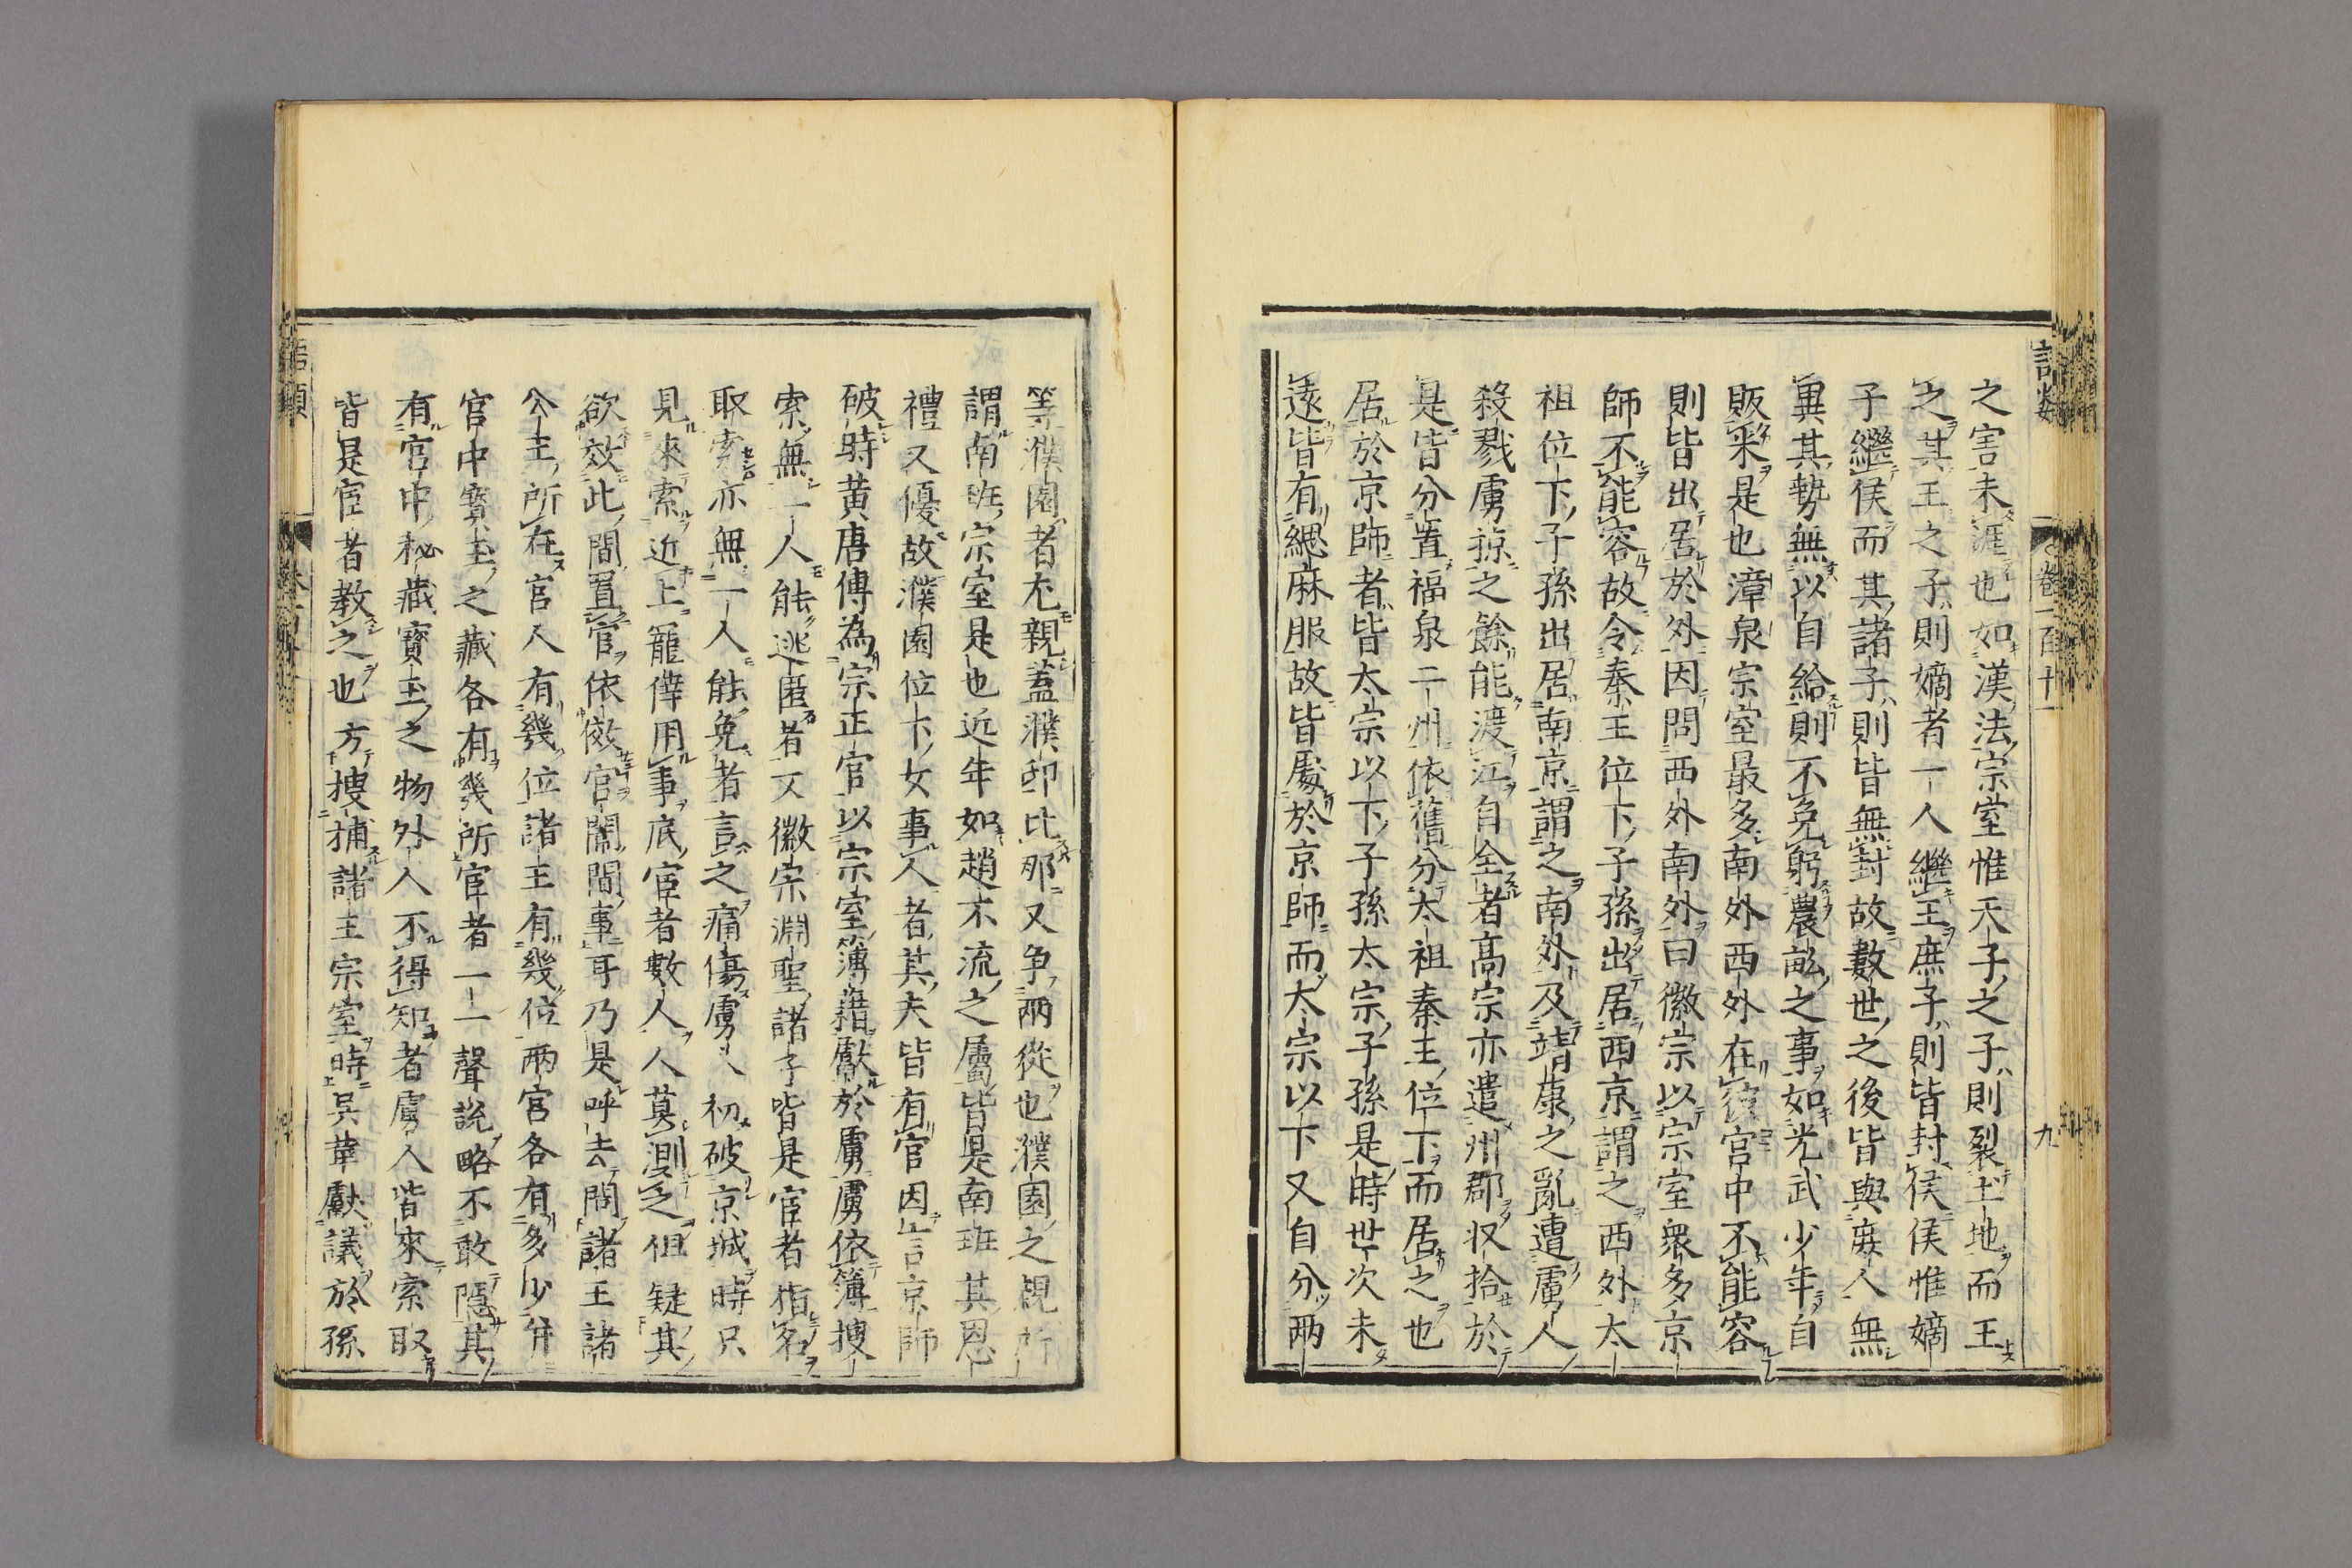 語類
卷一百十一
九
之害未涯也如漢法宗室惟天子之子則裂土地而王
之其王之子則嫡者一人繼王庶子則皆封侯侯惟嫡
子繼侯而其諸子則皆無封故數世之後皆與庶人無
異其勢無以自給則不免躬農畝之事如光武少年自
販米是也漳泉宗室最多南外西外在彼宮中不能容
則皆出居於外因問西外南外曰徽宗以宗室衆多京
師不能容故令秦王位下子孫出居西京謂之西外太
祖位下子孫出居南京謂之南外及靖康之亂遭虜人
殺戮虜掠之餘能渡江自全者高宗亦遣州郡収拾於
是皆分置福泉二州依舊分太祖秦王位下而居之也
居於京師者皆太宗以下子孫太宗子孫是時世次未
遠皆有緦麻服故皆處於京師而太宗以下又自分兩
等濮園者尤親蓋濮邸比那又爭兩從也濮園之親所
謂南班宗室是也近年如趙不流之屬皆是南班其恩
禮又優故濮園位下女事人者其夫皆有官因言京師
破時黄唐傳為宗正官以宗室簿籍獻於虜虜依簿搜
索無一人能逃匿者又徽宗淵聖諸子皆是宦者指名
取索亦無一人能免者言之痛傷虜人初破京城時只
見來索近上寵倖用事底宦者數人人莫測之但疑其
欲效此間置官依倣官闈間事耳乃是呼去問諸王諸
公主所在宮人有幾位諸王有幾位兩宮各有多少并
宮中寶玉之藏各有幾所宦者一一聲說略不敢隱其
有宮中秘藏寶玉之物外人不得知者虜人皆來索取
皆是宦者教之也方搜捕諸王宗室時吳革獻議於孫
語類